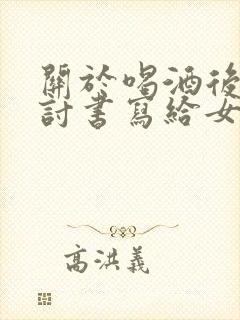 關於喝酒後
討書寫給女
高洪義